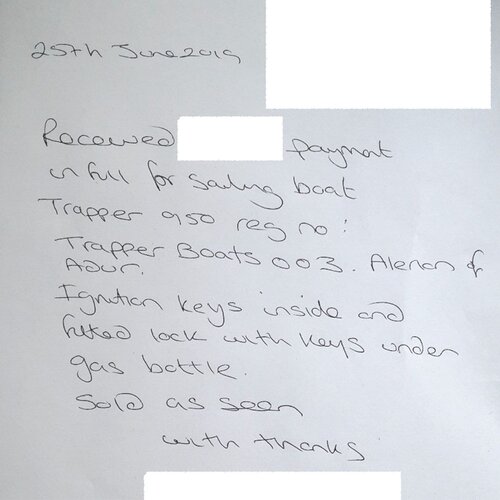 25th June 2019
Received payment
in full for sailing boat
Trapper 950 reg no:
Trapper Boats 003. of
Adur.
Ignition keys inside and
fitted lock with keys under
gas bottle.
Sold as seen
with thanks